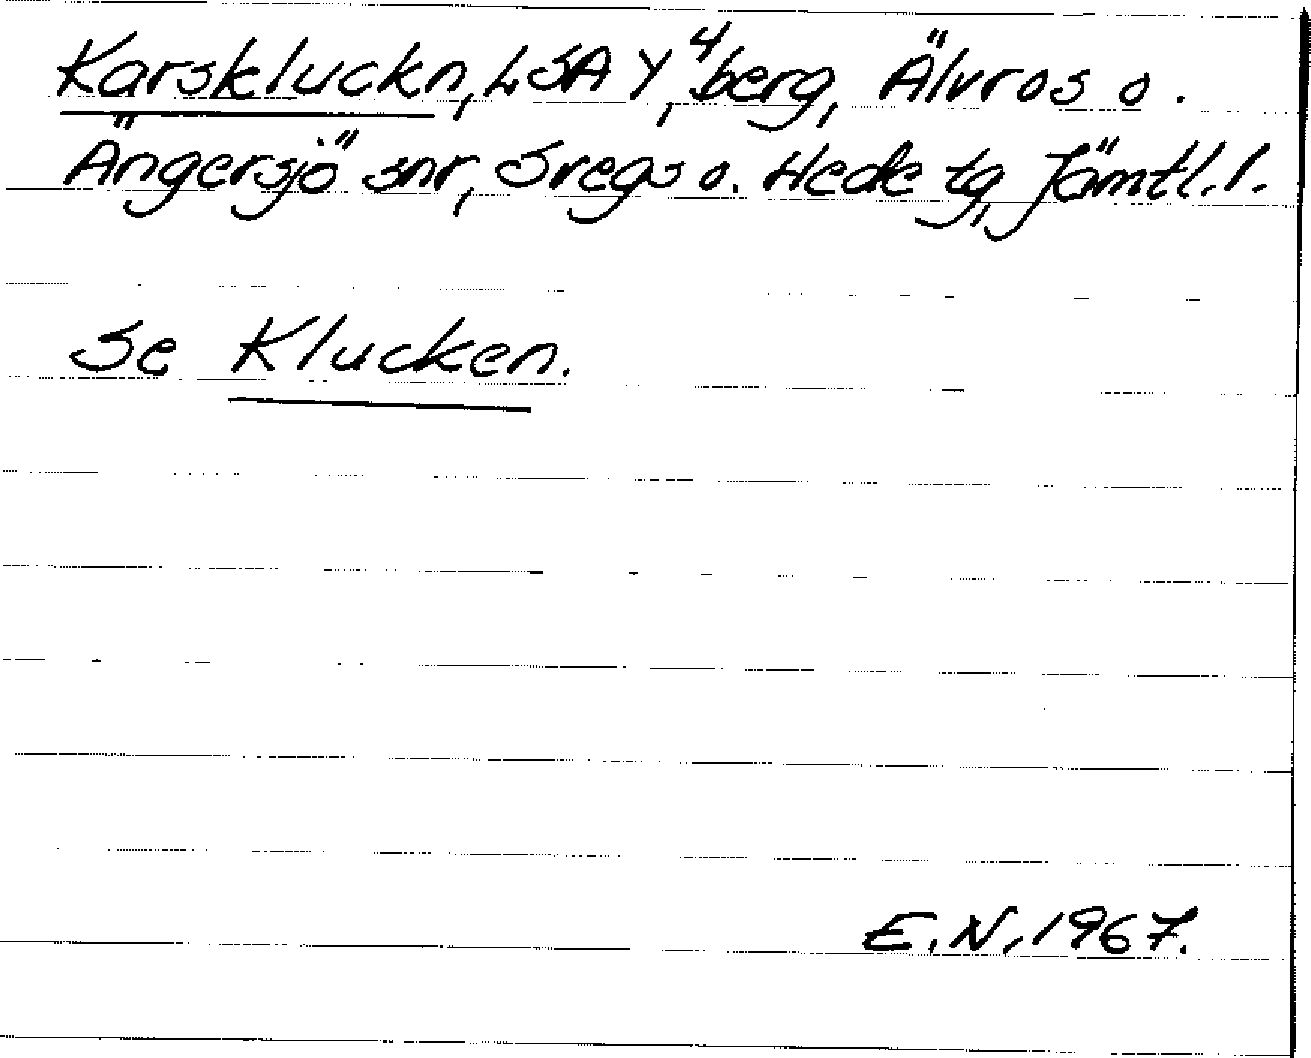 Karskluckn, LSA Y⁴, berg, Älvros o.
Ängersjö snr, Svegs o. Hede tg, Jämtl. l.
Se Klucken.
E.N, 1967.